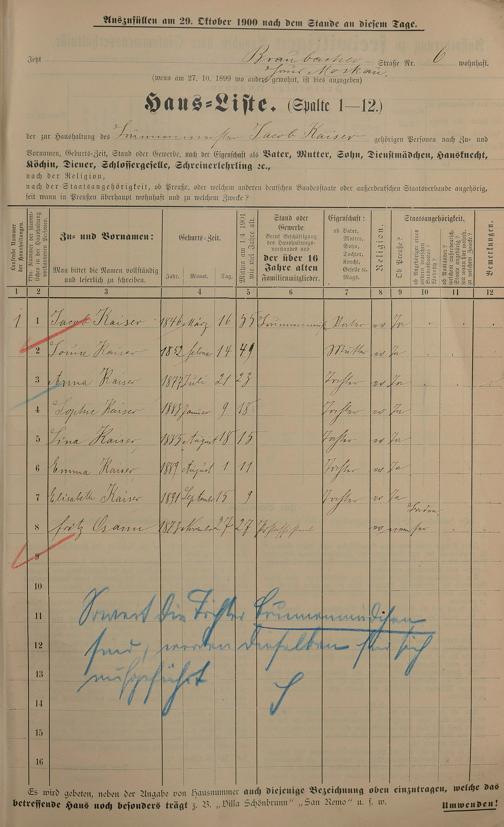 Auszufüllen am 29. Oktober 1900 nach dem Stande an diesem Tage.
Jetzt Braubacher Straße Nr. 6 wohnhaft.
Haus Moskau.
(wenn am 27. 10. 1899 wo anders gewohnt, ist dies anzugeben)
Haus-Liste. (Spalte 1—12.)
der zur Haushaltung des Brunnenmeister Jacob Kaiser gehörigen Personen nach Zu- und
Vornamen, Geburts-Zeit, Stand oder Gewerbe, nach der Eigenschaft als Vater, Mutter, Sohn, Dienstmädchen, Hausknecht,
Köchin, Diener, Schlossergeselle, Schreinerlehrling ec.,
nach der Religion,
nach der Staatsangehörigkeit, ob Preuße, oder welchem anderen deutschen Bundesstaate oder außerdeutschen Staatsverbande angehörig,
seit wann in Preußen überhaupt wohnhaft und zu welchem Zwecke?
Laufende Nummer der Haushaltungen.
Zu- und Vornamen:
Man bittet die Namen vollständig und leserlich zu schreiben.
Geburts-Zeit.
Jahr. Monat. Tag.
Stand oder Gewerbe
der über 16 Jahre alten Familienmitglieder.
Eigenschaft:
ob Vater, Mutter, Sohn, Tochter, Knecht, Geselle
Religion.
Staatsangehörigkeit.
Ob Preuße?
Bemerkungen.
1 2 3 4 5 6 7 8 9 10 11 12
1 1 Jacob Kaiser 1846 März 16 55 Brunnenmeister Vater ev Ja
2 Louise Kaiser 1852 14 49 Mutter ev Ja
3 Anna Kaiser 1877 Juli 21 23 Tochter ev Ja
4 Sophie Kaiser 1883 Januar 9 18 Tochter ev Ja
5 Lina Kaiser 1885 August 18 15 Tochter ev Ja
6 Emma Kaiser 1889 August 1 11 Tochter ev Ja
7 Elisabeth Kaiser 1891 September 15 9 Tochter ev Ja
8 Fritz Osann 1873 27 27 ev
9
10
11 Soweit die Töchter Brunnenmädchen
12 sind, werden dieselben für sich
13 aufgeführt
14
15
16
Es wird gebeten, neben der Angabe von Hausnummer auch diejenige Bezeichnung oben einzutragen, welche das
betreffende Haus noch besonders trägt z. B. „Villa Schönbrunn" „San Remo" u. s. w. Umwenden!